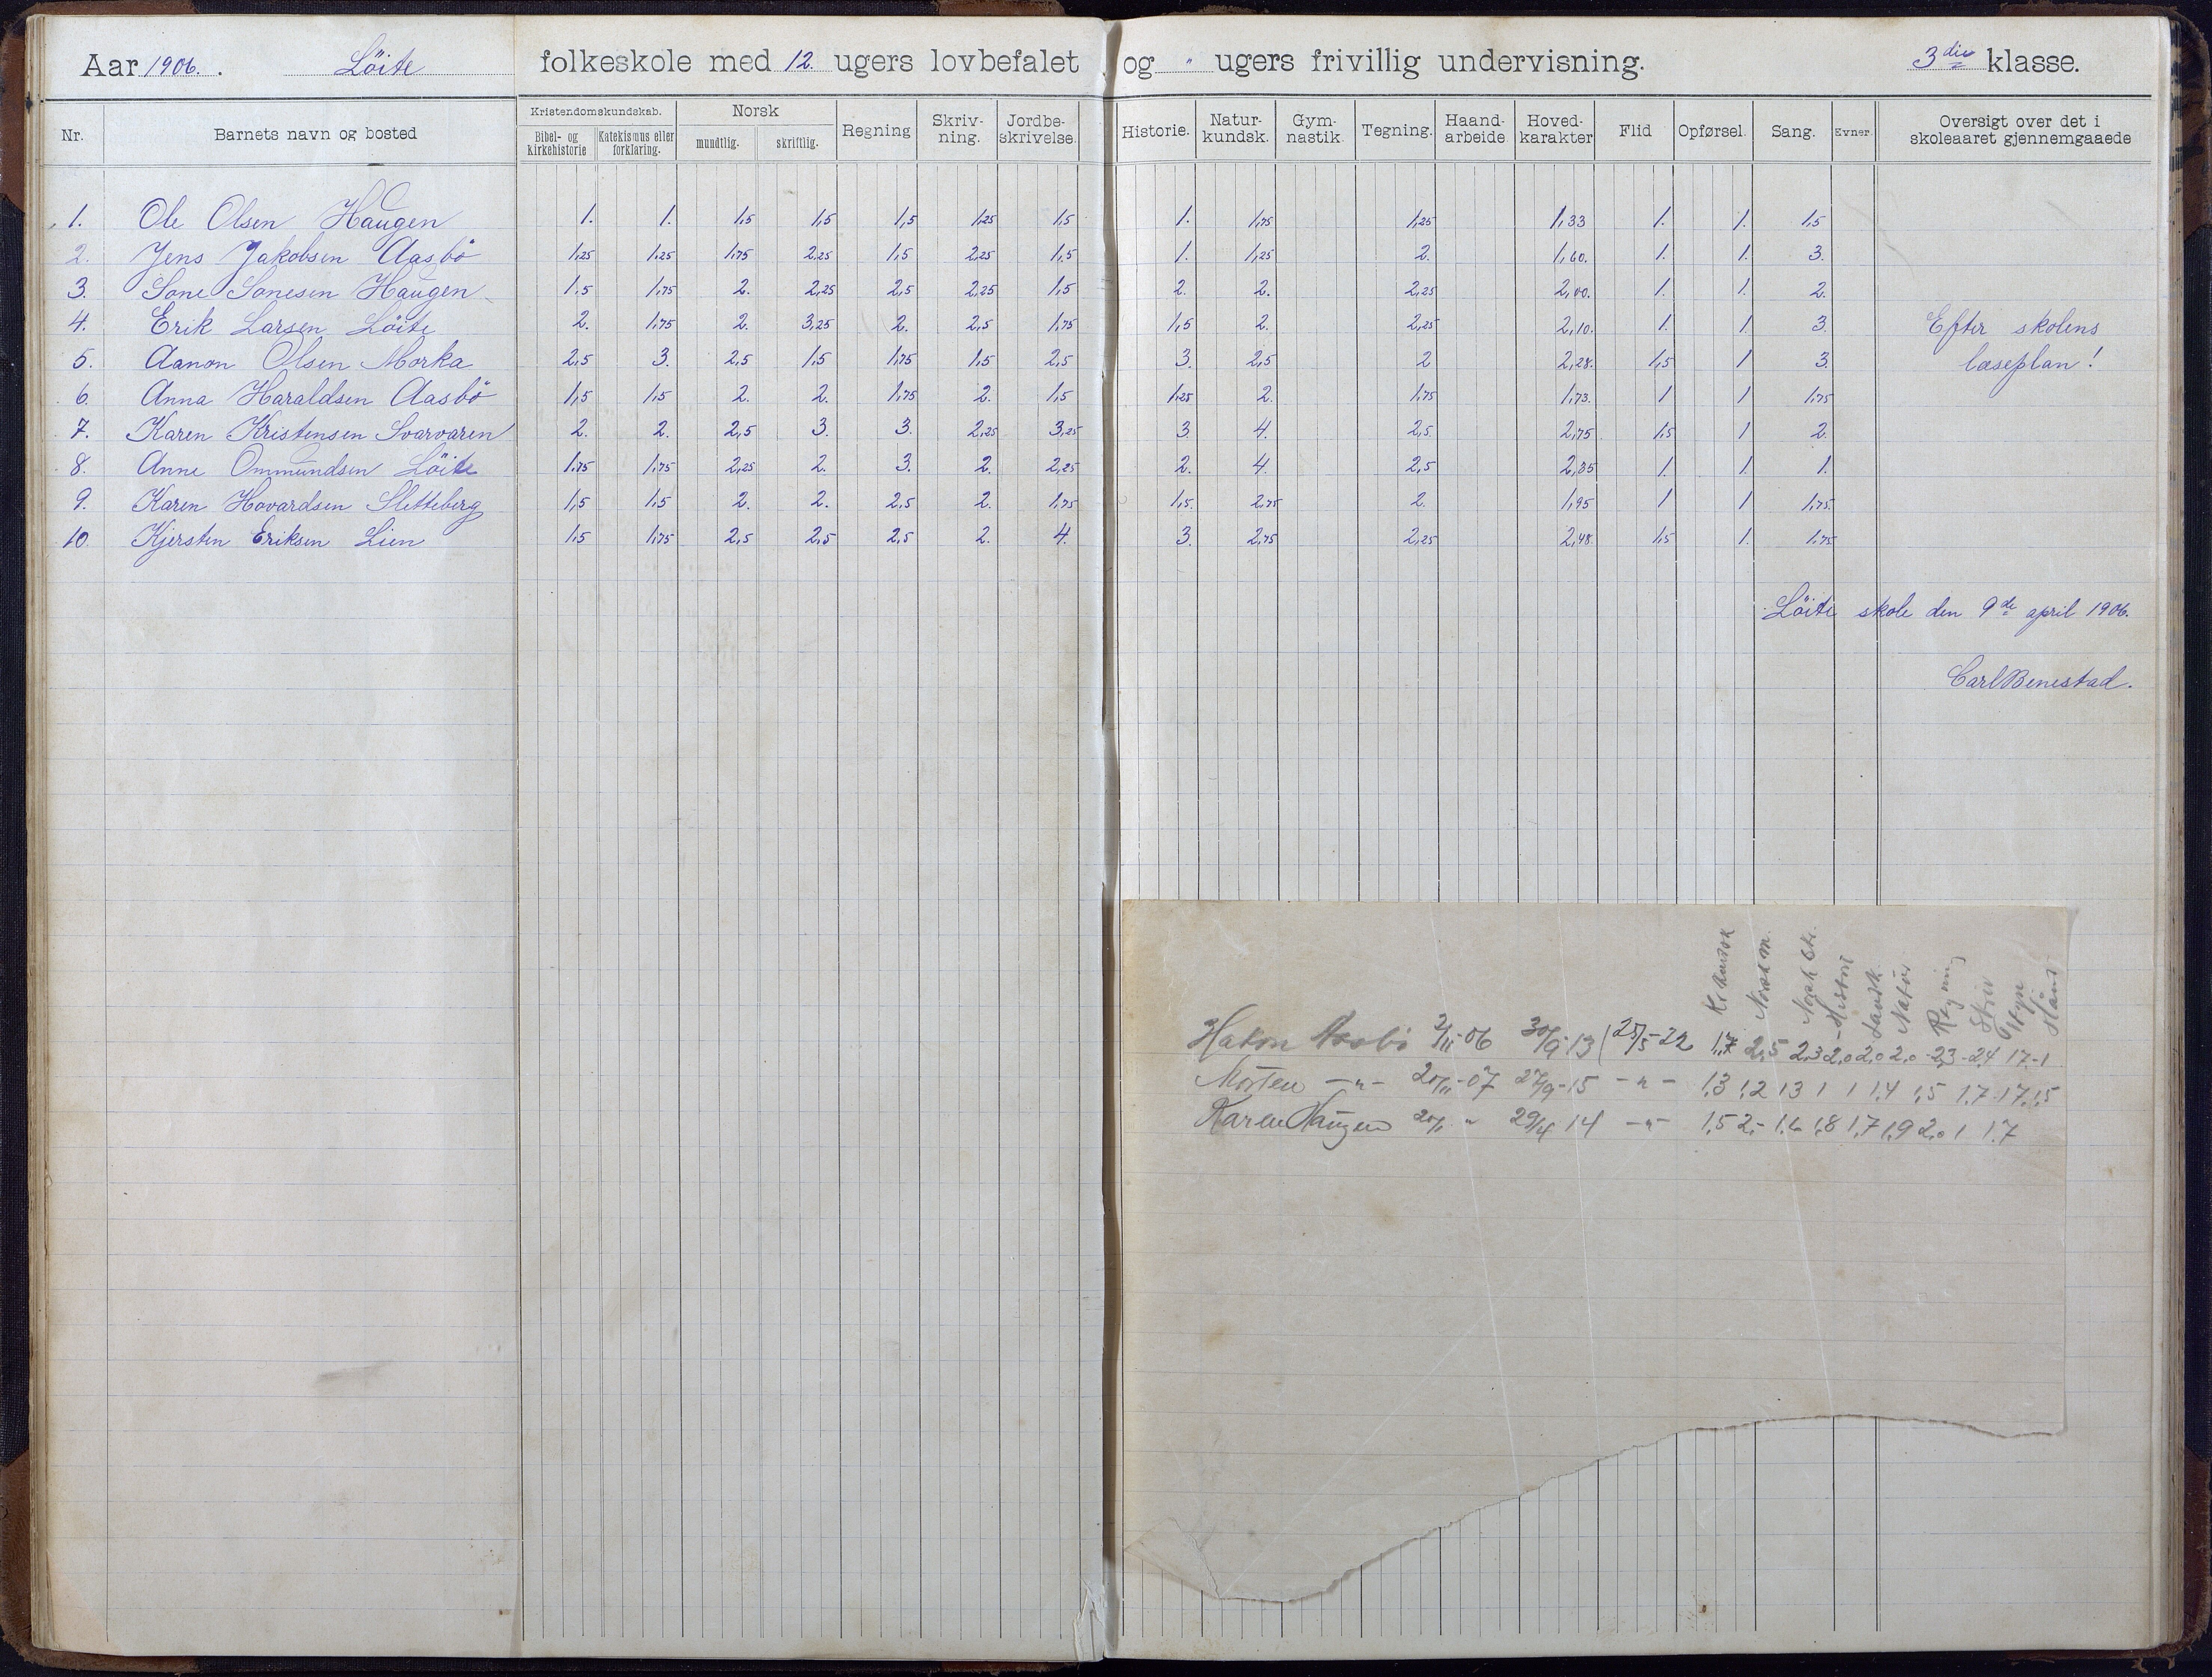 Aar 1906. Löite folkeskole med 12. ugers lovbefalet og " ugers frivillig undervisning. 3die klasse.
Nr. Barnets navn og bosted Kristendomskundskab. Bibel- og kirkehistorie Katekismus eller forklaring. Norsk mundtlig. skriftlig. Regning Skriv-ning. Jordbe-skrivelse. Historie. Natur-kundsk. Gym-nastik. Tegning. Haand-arbeide Hoved-karakter Flid Opførsel. Sang. Evner. Oversigt over det i skoleaaret gjennemgaaede
1. Ole Olsen Haugen 1. 1. 1,5 1,5 1,5 1,25 1,5 1. 1,75 1,25 1,33 1. 1. 1,5
2. Jens Jakobsen Aasbö 1,25 1,25 1,75 2,25 1,5 2,25 1,5 1. 1,25 2. 1,60. 1. 1. 3.
3. Sone Sonesen Haugen 1,5 1,75 2. 2,25 2,5 2,25 1,5 2. 2. 2,25 2,00. 1. 1. 2.
4. Erik Larsen Löite 2. 1,75 2. 3,25 2. 2,5 1,75 1,5 2. 2,25 2,10. 1. 1. 3. Efter skolens
5. Aanon Olsen Morka 2,5 3. 2,5 1,5 1,75 1,5 2,5 3. 2,5 2 2,28. 1,5 1 3. læseplan!
6. Anna Haraldsen Aasbö 1,5 1,5 2. 2. 1,75 2. 1,5 1,25 2. 1,75 1,73. 1 1 1,75
7. Karen Kristensen Svarvaren 2. 2. 2,5 3. 3. 2,25 3,25 3. 4. 2,5. 2,75 1,5 1 2.
8. Anne Ommundsen Löite 1,75 1,75 2,25 2. 3. 2. 2,25 2. 4. 2,5 2,35 1. 1. 1.
9. Karen Hovardsen Sletteberg 1,5 1,5 2. 2. 2,5 2. 1,75 1,5. 2,75 2. 1,95 1 1 1,75.
10. Kjersten Eriksen Lien 1,5 1,75 2,5 2,5 2,5 2. 4. 3. 2,75 2,25 2,48. 1,5 1. 1,75
Löite skole den 9de april 1906.
Carl Benestad.
Norsk m. Norsk skr. Histori Landk. Natur Regning Skriv Haand
Hakon Aasbö 2/11-06 30/9-13 (25/5-22 1,7 2,5 2,3 2,0 2,0 2,0 2,3-2,4 1,7-1
Morten -"- 20/11-07 27/9-15 -"- 1,3 1,2 1,3 1 1 1,4 1,5 1,7 1,7 1,5
Karen Haugen " 29/4 14 -"- 1,5 2,- 1,6 1,8 1,7 1,9 2,0 1 1,7